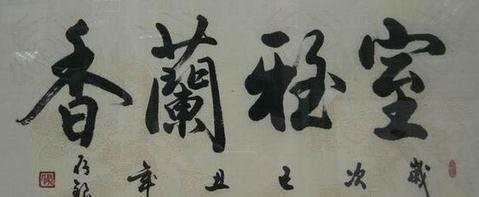 室雅蘭香
歲次己丑年